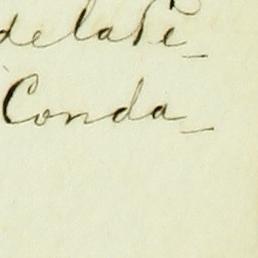 delate_
Conda_